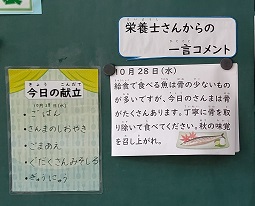 栄養士さんからの
一言コメント
きょう こんだて
今日の献立
10月28日(水)
・ごはん
・さんまのしおやき
・ごまあえ
・ぐだくさんみそしる
・ぎゅうにゅう
10月28日(水)
給食で食べる魚は骨の少ないもの
が多いですが、今日のさんまは骨
がたくさんあります。丁寧に骨を取
り除いて食べてください。秋の味覚
を召し上がれ。